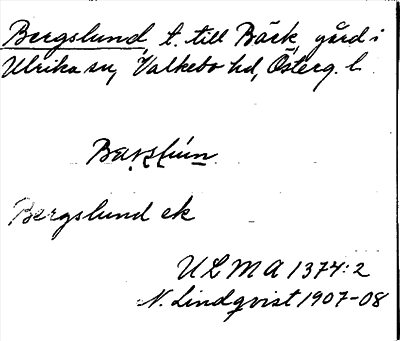 Bergslund, t. till Bäck, gård i
Ulrika sn, Valkebo hd, Österg. l.
Bergslund ek
ULMA 1374:2
N. Lindqvist 1907-08